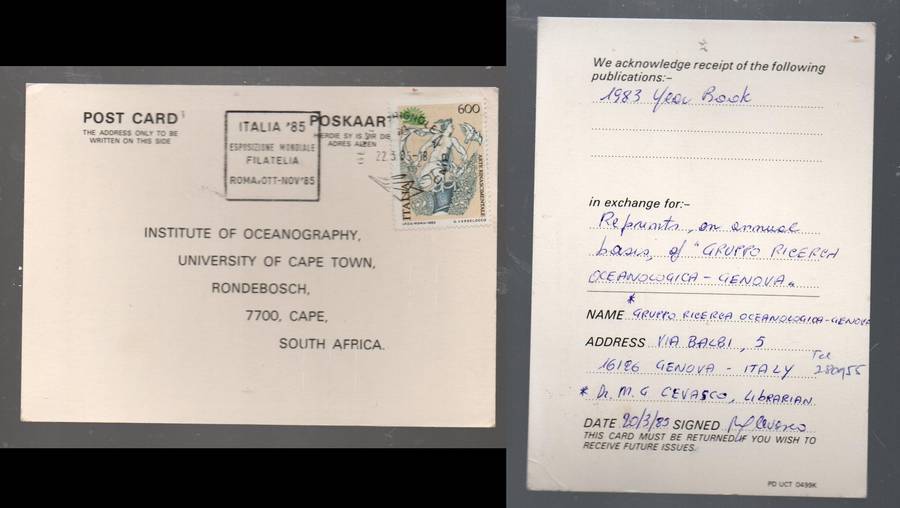 POST CARD
THE ADDRESS ONLY TO BE
WRITTEN ON THIS SIDE
POSKAART
HIERDIE SY IS VIR DIE
ADRES ALLEEN
ITALIA '85
ESPOSIZIONE MONDIALE
FILATELIA
ROMA.OTT-NOV'85
22.3.85-18
600
ITALIA
ARTE RINASCIMENTALE
INSTITUTE OF OCEANOGRAPHY,
UNIVERSITY OF CAPE TOWN,
RONDEBOSCH,
7700, CAPE,
SOUTH AFRICA.
We acknowledge receipt of the following
publications:-
1983 Year Book
in exchange for:-
Reprints, on annual
basis, of "GRUPPO RICERCA
OCEANOLOGICA - GENOVA"
*
NAME GRUPPO RICERCA OCEANOLOGICA - GENOVA
ADDRESS VIA BALBI, 5
16126 GENOVA - ITALY Tel
* Dr. M. G CEVASCO, LIBRARIAN
DATE 20/3/85 SIGNED Cevasco
THIS CARD MUST BE RETURNED IF YOU WISH TO
RECEIVE FUTURE ISSUES.
PD UCT 0499K